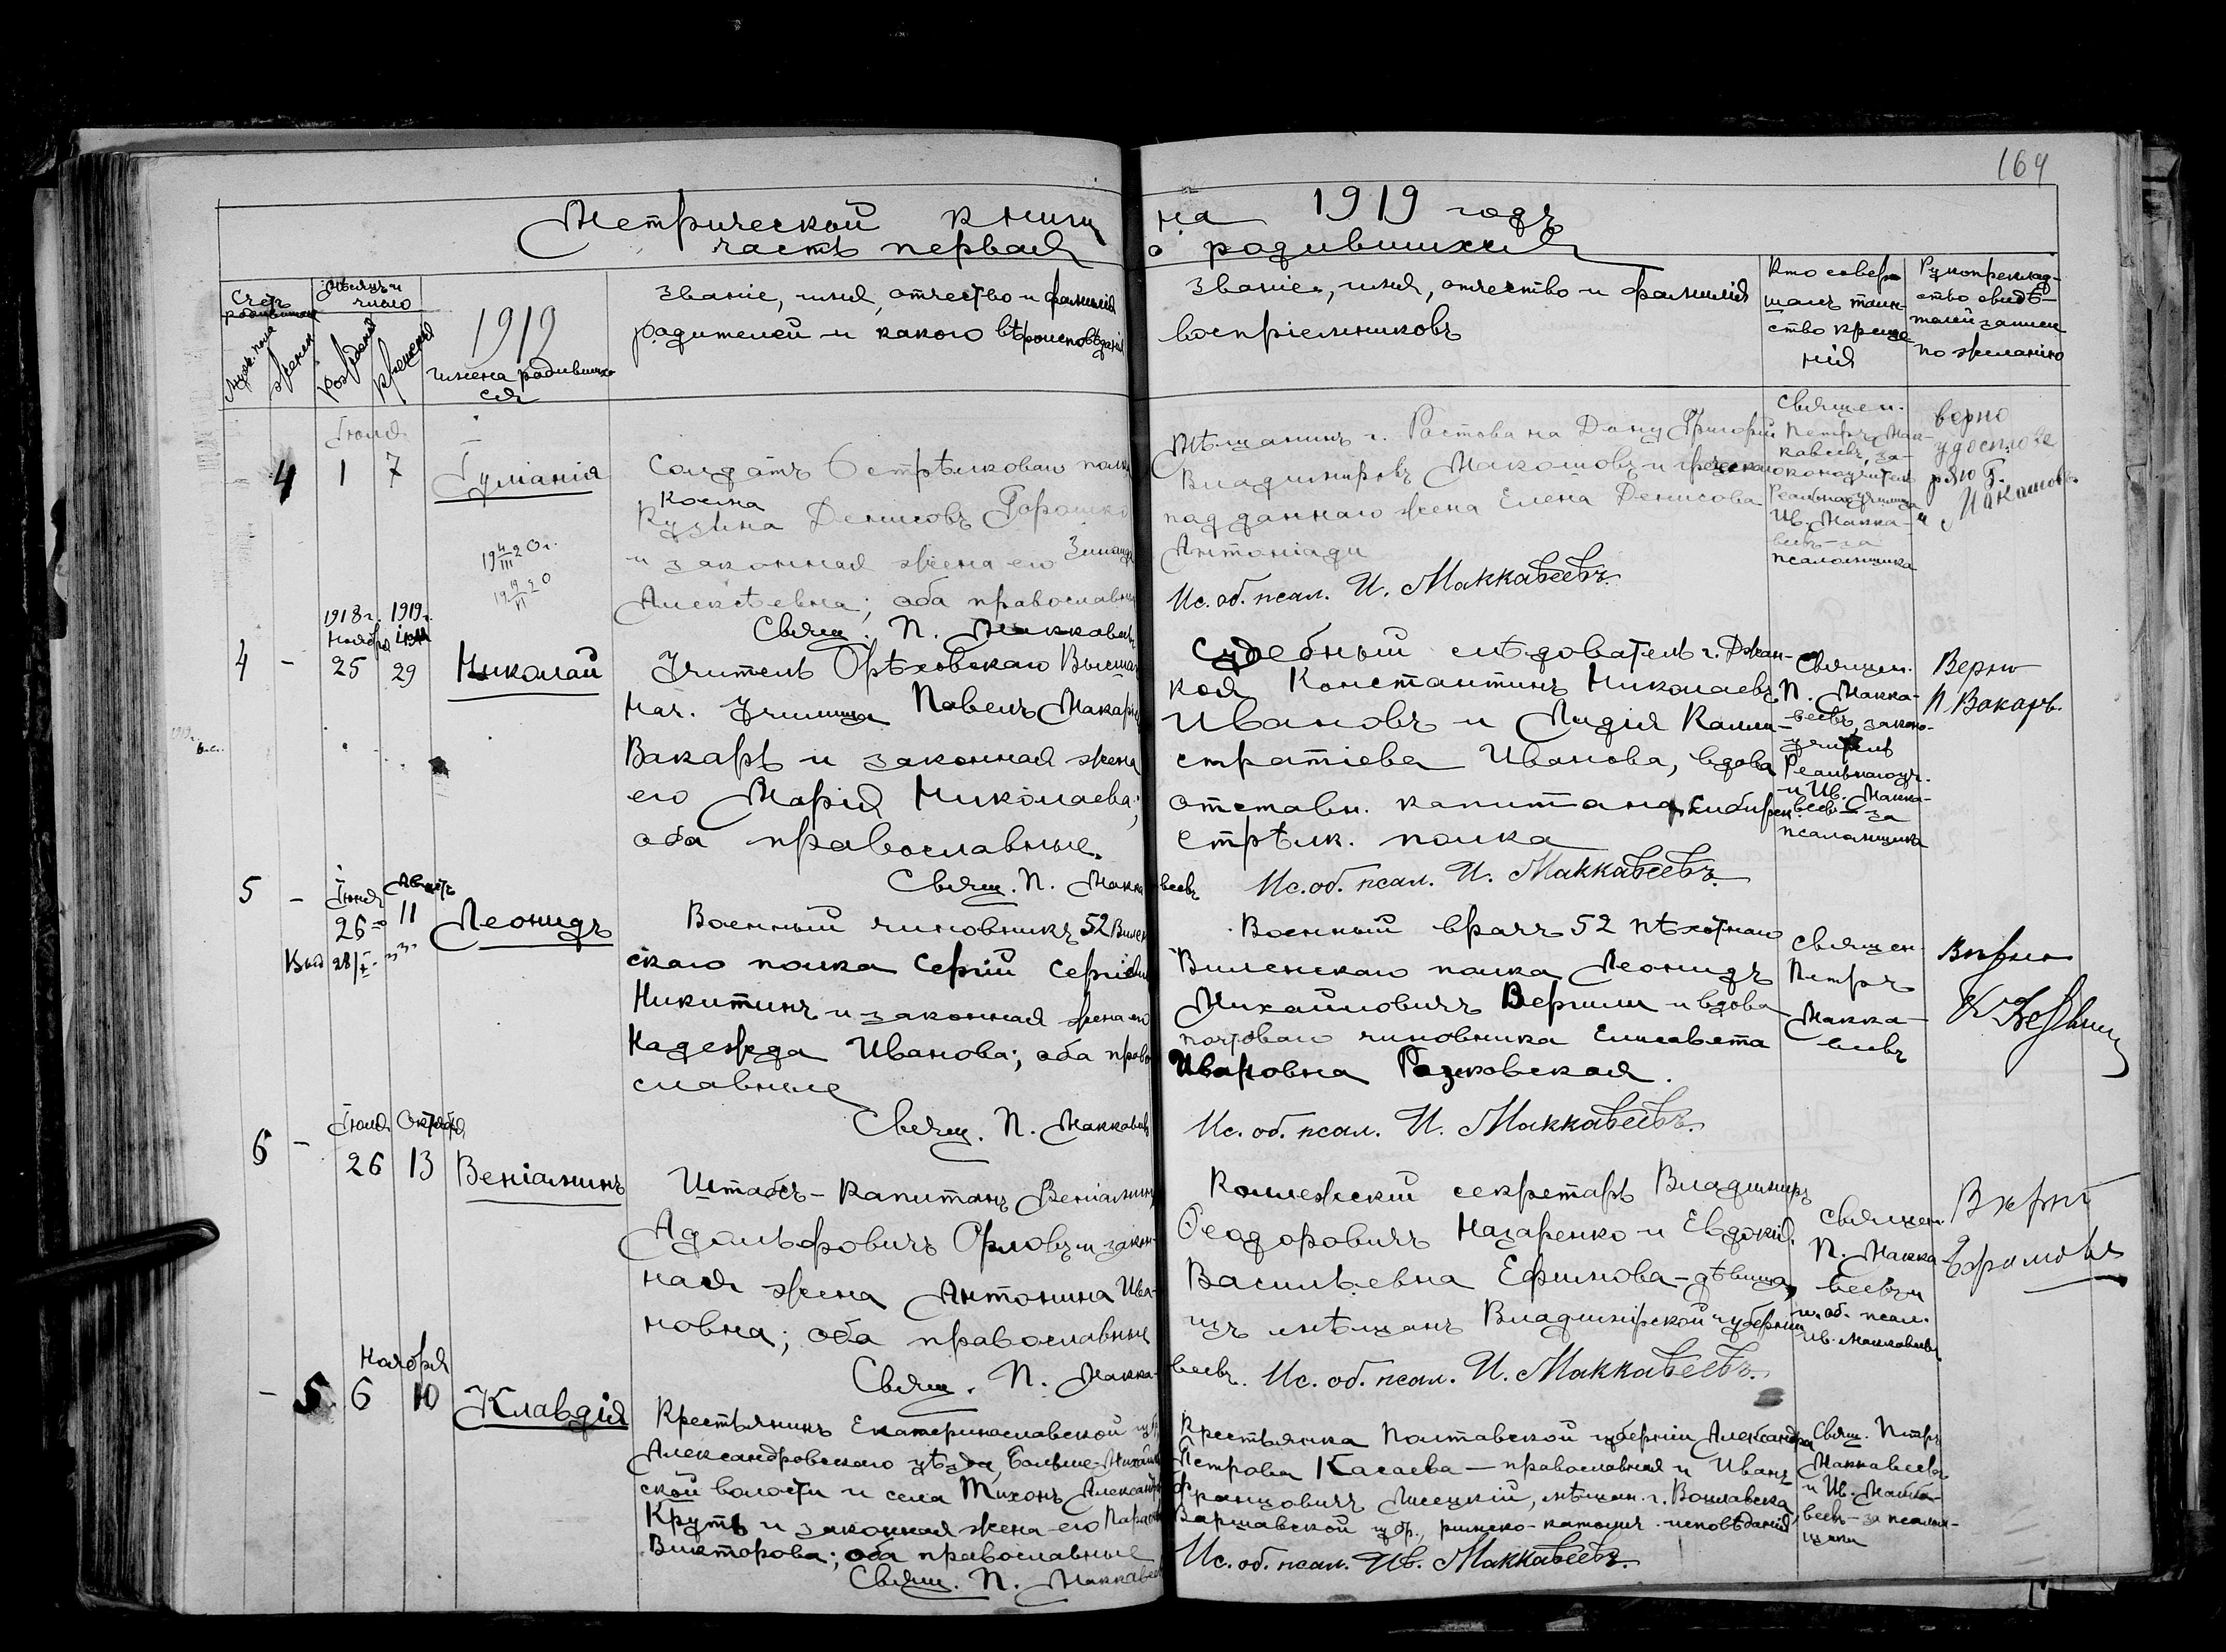 164
Метрической книги на 1919 годъ
часть первая о родившихся
Счетъ родившихся
Мужск. пола
женск.
Мѣсяцъ и число
рожденія
крещенія
1919
Имена родившихся
Званіе, имя, отчество и фамилія
родителей и какого вѣроисповѣданія
Званіе, имя, отчество и фамилія
воспріемниковъ
Кто совер-
шалъ таин-
ство креще-
нія
Рукоприклад-
ство свидѣ-
телей записи
по желанію
Іюля
4 1 7 Іуліанія
19 4/III 20 г.
19 19/VI 20
Солдатъ 6 стрѣлковаго полка
Косма
Кузьма Денисовъ Горошко
и законная жена его Зинаида
Алексѣевна; оба православные
Свящ. П. Маккавеевъ
Мѣщанинъ г. Ростова на Дону Григорій
Владиміровъ Макашовъ и греческаго
подданнаго жена Елена Денисова
Антоніади
Ис. об. псал. И. Маккавеевъ.
Священ.
Петръ Мак-
кавеевъ, за-
коноучитель
Реальнаго училища
и Ив. Макка-
веевъ - за
псаломщика
верно
1918 г. 1919 г.
Ноября Іюля
4 - 25 29 Николай
Учитель Орѣховскаго Высшаго
Нач. Училища Павелъ Макарьев
Вакаръ и законная жена
его Марія Николаева;
оба православные.
Свящ. П. Маккавеевъ
Судебный слѣдователь г. Джан-
коя Константинъ Николаевъ
Ивановъ и Лидія Калли-
стратіева Иванова, вдова
отставн. капитана Сибирск.
стрѣлк. полка
Ис. об. псал. И. Маккавеевъ.
Священ.
П. Макка-
веевъ, законо-
учитель
Реальнаго уч.
и Ив. Макка-
веевъ - за
псаломщика
Верно
П Вакаръ.
Іюля Августъ
5 - 26 11 Леонидъ
Военный чиновникъ 52 Вилен-
скаго полка Сергій Сергіевичъ
Никитинъ и законная жена его
Надежда Иванова; оба право-
славные
Свящ. П. Маккавеевъ
Военный врачъ 52 пѣхотнаго
Виленскаго полка Леонидъ
Михайловичъ Верлинъ и вдова
почтоваго чиновника Елисавета
Ивановна Разковская.
Ис. об. псал. И. Маккавеевъ.
Священ.
Петръ
Макка-
веевъ
Вѣрно
Іюля Октября
6 - 26 13 Веніаминъ
Штабсъ-Капитанъ Веніаминъ
Адольфовичъ Орловъ и закон-
ная жена Антонина Ива-
новна; оба православные
Свящ. П. Маккавеевъ.
Коллежскій секретарь Владиміръ
Ѳеодоровичъ Назаренко и Евдокія
Васильевна Ефимова - дѣвица,
изъ мѣщанъ Владимірской губерніи
Ис. об. псал. И. Маккавеевъ.
Священ.
П. Макка-
веевъ и
и. об. псал.
Ив. Маккавеевъ
Вѣрно
Ноября
- 5 6 10 Клавдія
Крестьянинъ Екатеринославской губ.
Александровскаго уѣзда, Больше-Михайлов-
ской волости и села Тихонъ Александровъ
Круть и законная жена его Параскева
Викторова; оба православные
Свящ. П. Маккавеевъ
Крестьянка Полтавской губерніи Александра
Петрова Касаева - православная и Иванъ
Францовичъ Лисецкій, мѣщан. г. Воцлавска,
Варшавской губ., римско-католич. исповѣданія
Ис. об. псал. Ив. Маккавеевъ.
Свящ. Петръ
Маккавеевъ
и Ив. Макка-
веевъ - за псалом-
щика